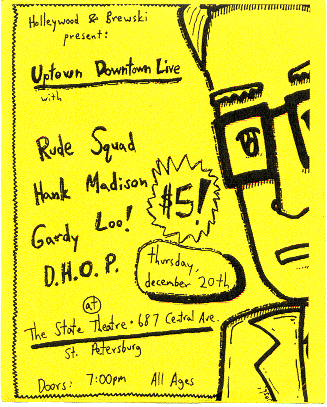 Holleywood & Brewski
present:
Uptown Downtown Live
with
Rude Squad
Hank Madison
Gardy Loo!
D.H.O.P.
$5!
Thursday,
december 20th
at
The State Theatre • 687 Central Ave.
St. Petersburg
Doors: 7:00pm All Ages